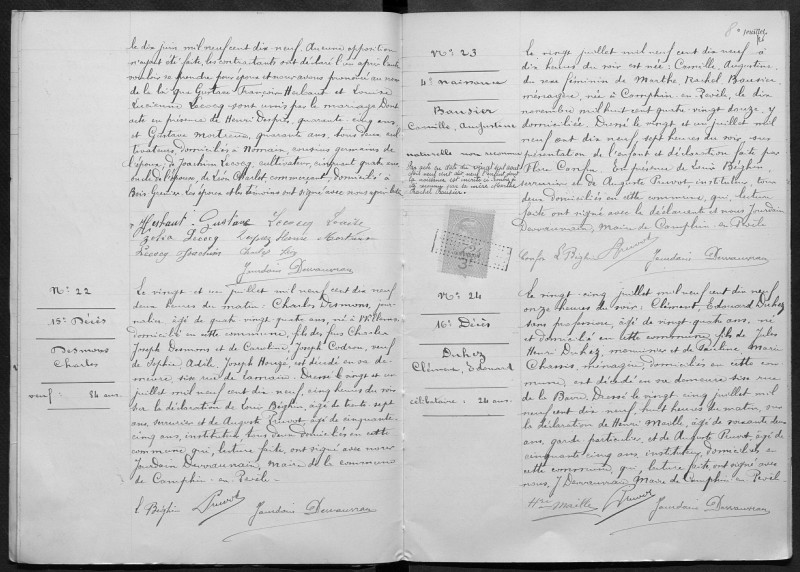 le dix juin mil neuf cent dix neuf. Aucune opposition
n'ayant été faite, les contractants ont déclaré l'un après l'autre
vouloir se prendre pour époux et nous avons prononcé au nom
de la loi que Gustave François Herbaut et Louise
Lucienne Lecocq sont unis par le mariage. Dont
acte en présence de Henri Despin, quarante cinq ans,
et Gustave Mortreux, quarante ans, tous deux cul
tivateurs, domiciliés à Nomain, cousins germains de
l'époux; de Joachim Lecocq, cultivateur, cinquante quatre ans
oncle de l'épouse, de Léon Charlet commerçant domiciliés à
Bois Grenier. Les époux et les témoins ont signé avec nous après lecture
Herbaut Gustave Lecocq Louise
Zélia Lecocq Mortreux
Lecocq Joachim Charlet Léon
Jourdain Dervauvrau
N°: 22
15e Décès
Desmons
Charles
veuf : 84 ans.
Le vingt et un juillet mil neuf cent dix neuf
deux heures du matin: Charles Desmons, jour-
nalier, âgé de quatre vingt quatre ans, né à
domicilié en cette commune, fils des feus Charles
Joseph Desmons et de Caroline Joseph Codron, veuf
de Sophie Adèle Joseph Houzé, est décédé en sa de-
meure sise rue de Camain. Dressé le vingt et un
juillet mil neuf cent dix neuf, cinq heures du soir
sur la déclaration de Louis Béghin, âgé de trente sept
ans, serrurier et de Auguste Pruvot âgé de cinquante-
cinq ans, instituteur tous deux domiciliés en cette
commune qui, lecture faite, ont signé avec nous
Jourdain Dervauvrau, Maire de la commune
de Camphin - en Pévèle -
L Béghin Pruvot Jourdain Dervauvrau
8e juillet
N°: 23
4e naissance
Bousier
Camille, Augustine
naturelle non reconnue
Le vingt juillet mil neuf cent dix neuf à
dix heures du soir est née: Camille, Augustine,
du sexe féminin de Marthe Rachel Bousier,
ménagère, née à Camphin en Pévèle, le dix
novembre mil huit cent quatre vingt douze, y
domiciliée. Dressé le vingt et un juillet mil
neuf cent dix neuf, sept heures du soir, sur
présentation de l'enfant et déclaration faite par
Flore Confra. En présence de Louis Béghin,
serrurier et de Auguste Pruvot instituteur, tous
deux domiciliés en cette commune, qui, lecture
faite ont signé avec la déclarante et nous Jourdain
Dervauvrau, Maire de Camphin en Pévèle
Confra L Béghin Pruvot Jourdain Dervauvrau
N°: 24
16e Décès
Duhez
Clément, Edouard
célibataire : 24 ans.
Le vingt cinq juillet mil neuf cent dix neuf
onze heures du soir: Clément, Edouard Duhez
sans profession, âgé de vingt quatre ans, né
et domicilié en cette commune, fils de Jules
Henri Duhez, et de Pauline Marie
ménagère, domiciliés en cette com-
mune, est décédé en sa demeure sise rue
de la Barre. Dressé le vingt cinq juillet mil
neuf cent dix neuf, huit heures du matin, sur
la déclaration de Henri Maille, âgé de soixante deux
ans, garde particulier, et de Auguste Pruvot, âgé de
cinquante cinq ans, instituteur, domiciliés en
cette commune, qui, lecture faite, ont signé avec
nous, J Dervauvrau Maire de Camphin en Pévèle.
Hri Maille Pruvot Jourdain Dervauvrau